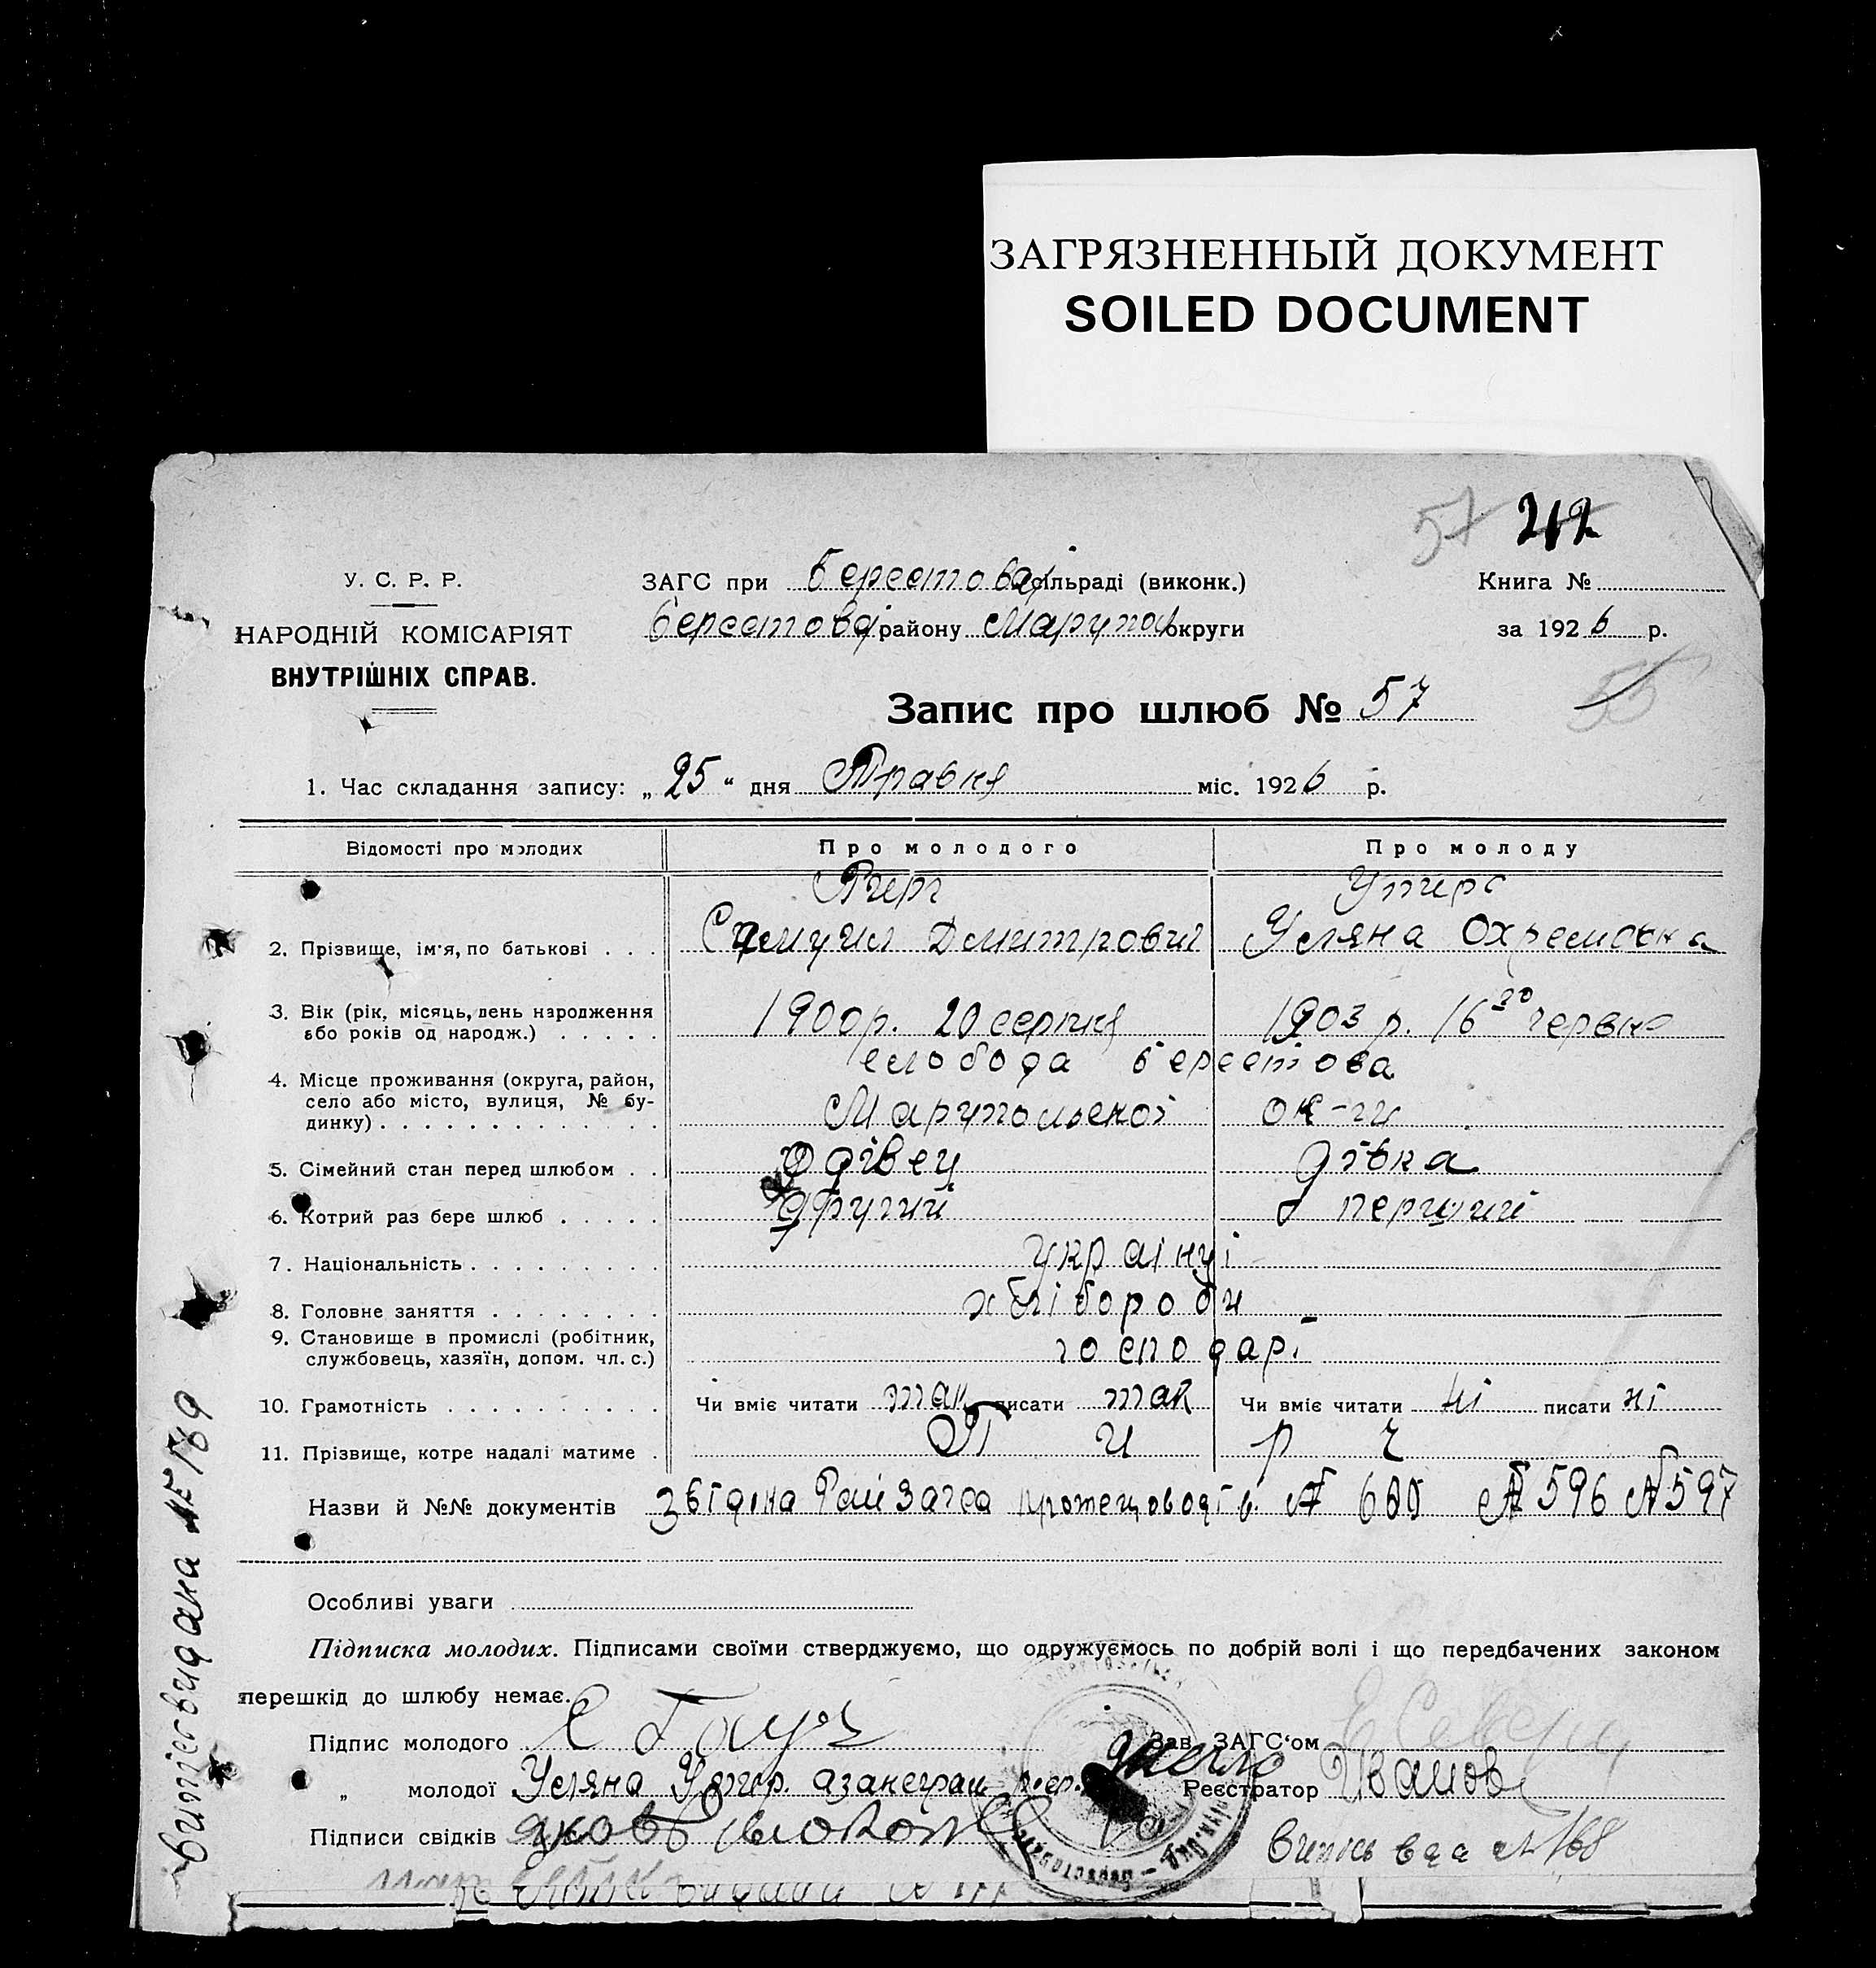 ЗАГРЯЗНЕННЫЙ ДОКУМЕНТ
SOILED DOCUMENT
57 212
У. С. Р. Р.
ЗАГС при Берестовай сільраді (виконк.)
Книга №
НАРОДНІЙ КОМІСАРІЯТ
Берестова району Маріупол округи
за 1926 р.
ВНУТРІШНІХ СПРАВ.
Запис про шлюб № 57
55
1. Час складання запису: „25" дня Травня міс. 1926 р.
Відомості про молодих Про молодого Про молоду
2. Прізвище, ім'я, по батькові . . . Самуил Дмитрович Уляна Охремовна
3. Вік (рік, місяць, день народження 1900 р. 20 серпня 1903 р. 16го червня
або років од народж.) . . . . .
слобода берестова
4. Місце проживання (округа, район,
село або місто, вулиця, № бу-
динку) . . . . . . . . . . . . . Маріупольскоі ок-ги
5. Сімейний стан перед шлюбом . . Удівец дівка
6. Котрий раз бере шлюб . . . . . другий перший
7. Національність . . . . . . . . . українці
8. Головне заняття . . . . . . . . хлібороби
9. Становище в промислі (робітник,
службовець, хазяїн, допом. чл. с.) господарі
10. Грамотність . . . . . . . . . . Чи вміє читати так писати так Чи вміє читати ні писати ні
11. Прізвище, котре надалі матиме .
Назви й №№ документів № 596 № 597
Особливі уваги
Підписка молодих. Підписами своїми стверджуємо, що одружуємось по добрій волі і що передбачених законом
перешкід до шлюбу немає.
Підпис молодого
Зав. ЗАГС'ом
„ молодої Уляна
Реєстратор Иванов
Підписи свідків Яков
Випись вида № 168